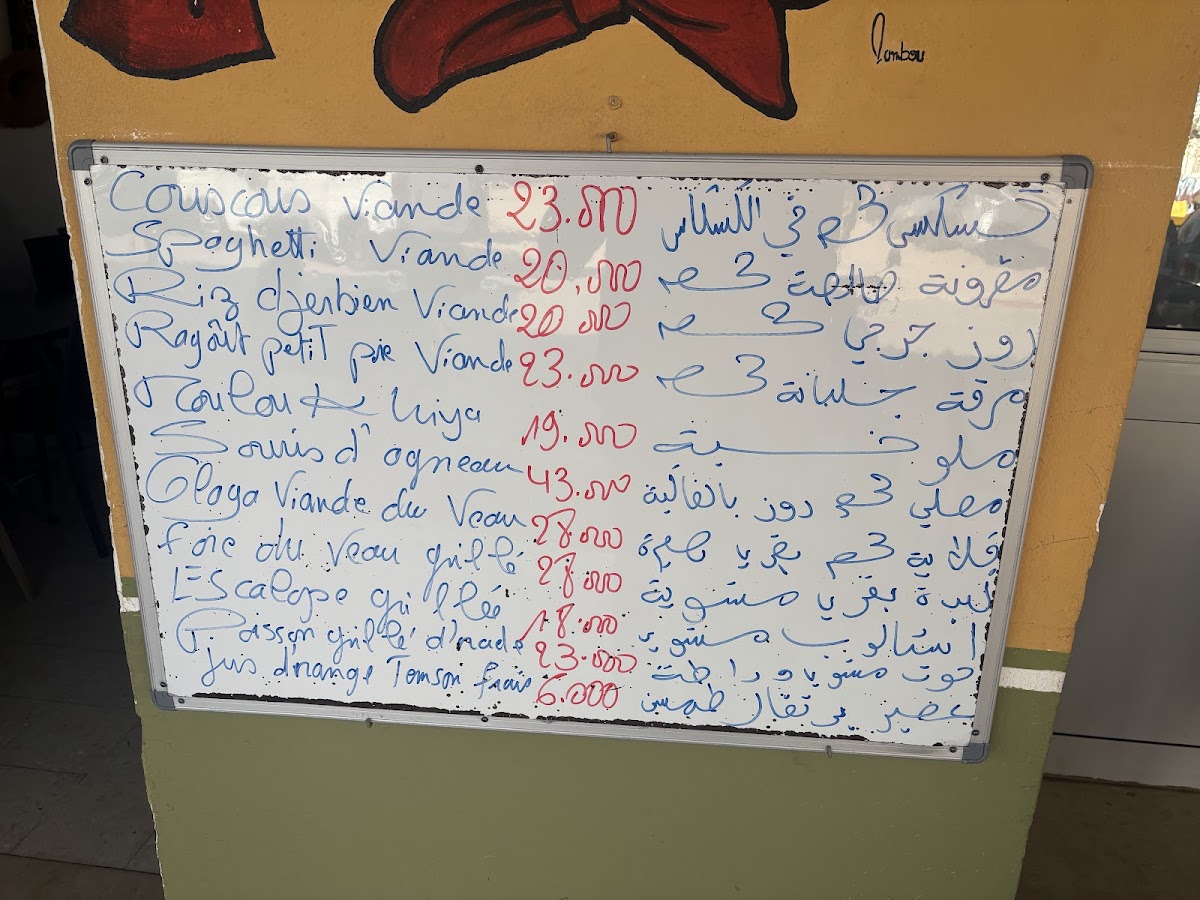 Jambou
Couscous Viande 23.000 كسكسي لحم في الكسكاس
Spaghetti Viande 20.000 مقرونة صالصة لحم
Riz djerbien Viande 20.000 روز جربي لحم
Ragoût petit poie Viande 23.000 مرقة جلبانة لحم
Moulou 19.000 ملوخية
Souris d'agneau 43.000 مصلي لحم روز بالفاكية
Glaya Viande du Veau 28.000 قلاية لحم بقري
foie du veau grillé 28.000 كبدة بقري مشوية
Escalope grillée 18.000 اسكالوب مشوي
Poisson grillé d'orade 23.000 حوت مشوي وراطة
Jus d'orange Tomson frais 6.000 عصير برتقال طمسن